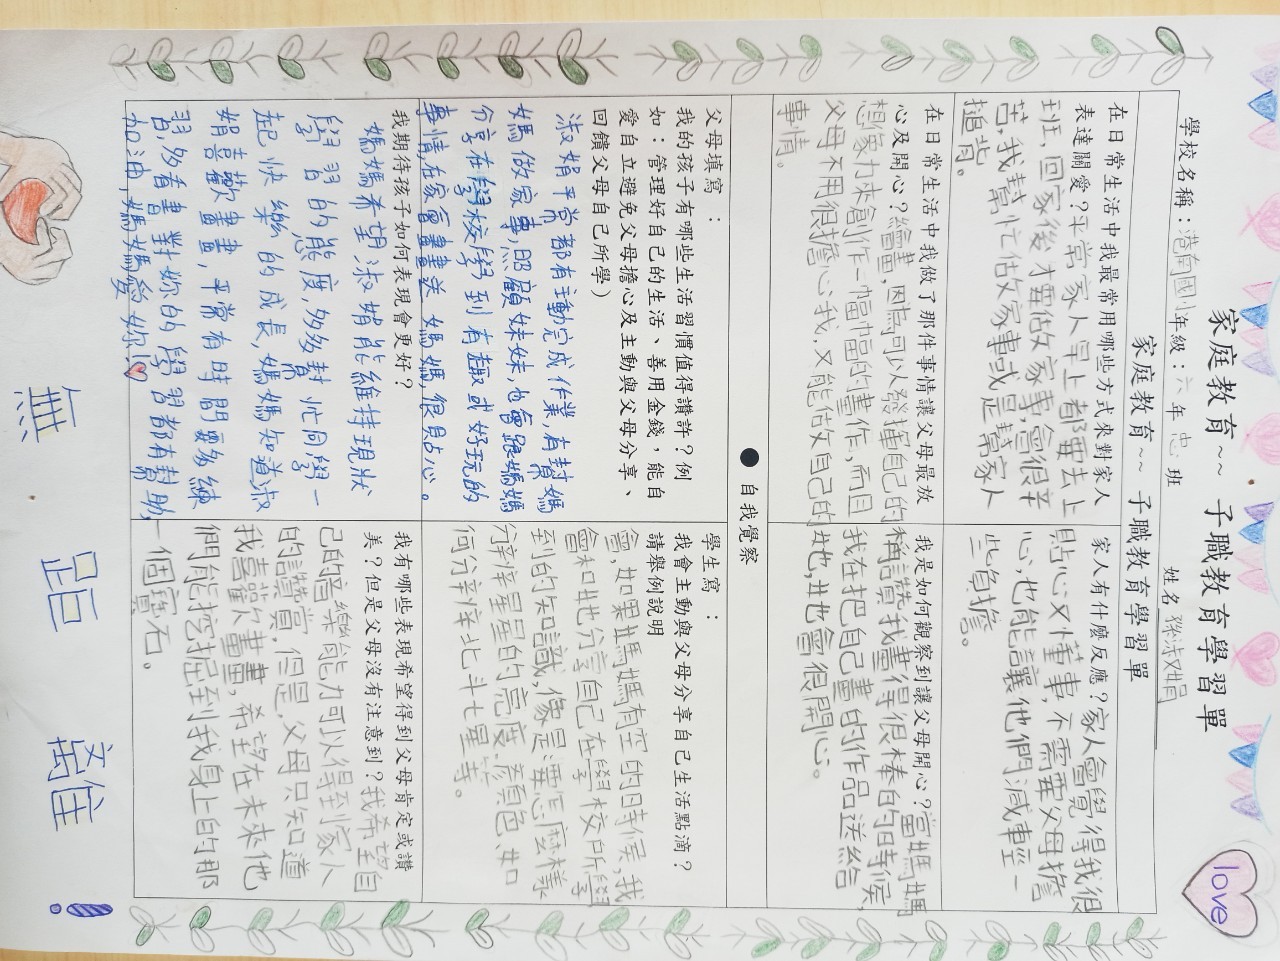 家庭教育~~ 子職教育學習單
love
學校名稱:港南國小 年級:六 年 忠 班 姓名 孫淑娟
家庭教育~~ 子職教育學習單
在日常生活中我最常用哪些方式來對家人
表達關愛?平常家人早上都要去上
班,回家後才要做家事,會很辛
苦,我幫忙做家事或是幫家人
搥背。
家人有什麼反應?家人會覺得我很
貼心又懂事,不需要父母擔
心,也能讓他們減輕一
些負擔。
在日常生活中我做了那件事情讓父母最放
心及開心?繪畫,因為可以發揮自己的
想像力來創作一幅幅的畫作,而且
父母不用很擔心我,又能做自己的
事情。
我是如何觀察到讓父母開心?當媽媽
稱讚我畫得很棒的時候
我在把自己畫的作品送給
她,她也會很開心。
● 自我覺察
父母填寫:
我的孩子有哪些生活習慣值得讚許?例
如:管理好自己的生活、善用金錢,能自
愛自立避免父母擔心及主動與父母分享、
回饋父母自己所學)
淑娟平常都有主動完成作業,有幫媽
媽做家事,照顧妹妹,也會跟媽媽
分享在學校學到有趣或好玩的
事情,在家會畫畫送媽媽,很貼心。
學生寫:
我會主動與父母分享自己生活點滴?
請舉例說明
會,如果媽媽有空的時候,我
會和她分享自己在學校所學
到的知識,像是要怎麼樣
分辨星星的亮度、顏色、如
何分辨北斗七星等。
我期待孩子如何表現會更好?
媽媽希望淑娟能維持現狀
學習的態度,多多幫忙同學一
起快樂的成長,媽媽知道淑
娟喜歡畫畫,平常有時間要多練
習,多看書對妳的學習都有幫助,
加油,媽媽愛妳!
我有哪些表現希望得到父母肯定或讚
美?但是父母沒有注意到?我希望自
己的音樂能力可以得到家人
的讚賞,但是,父母只知道
我喜歡畫畫,希望在未來他
們能挖掘到我身上的那
一個寶石。
無 距 離 !